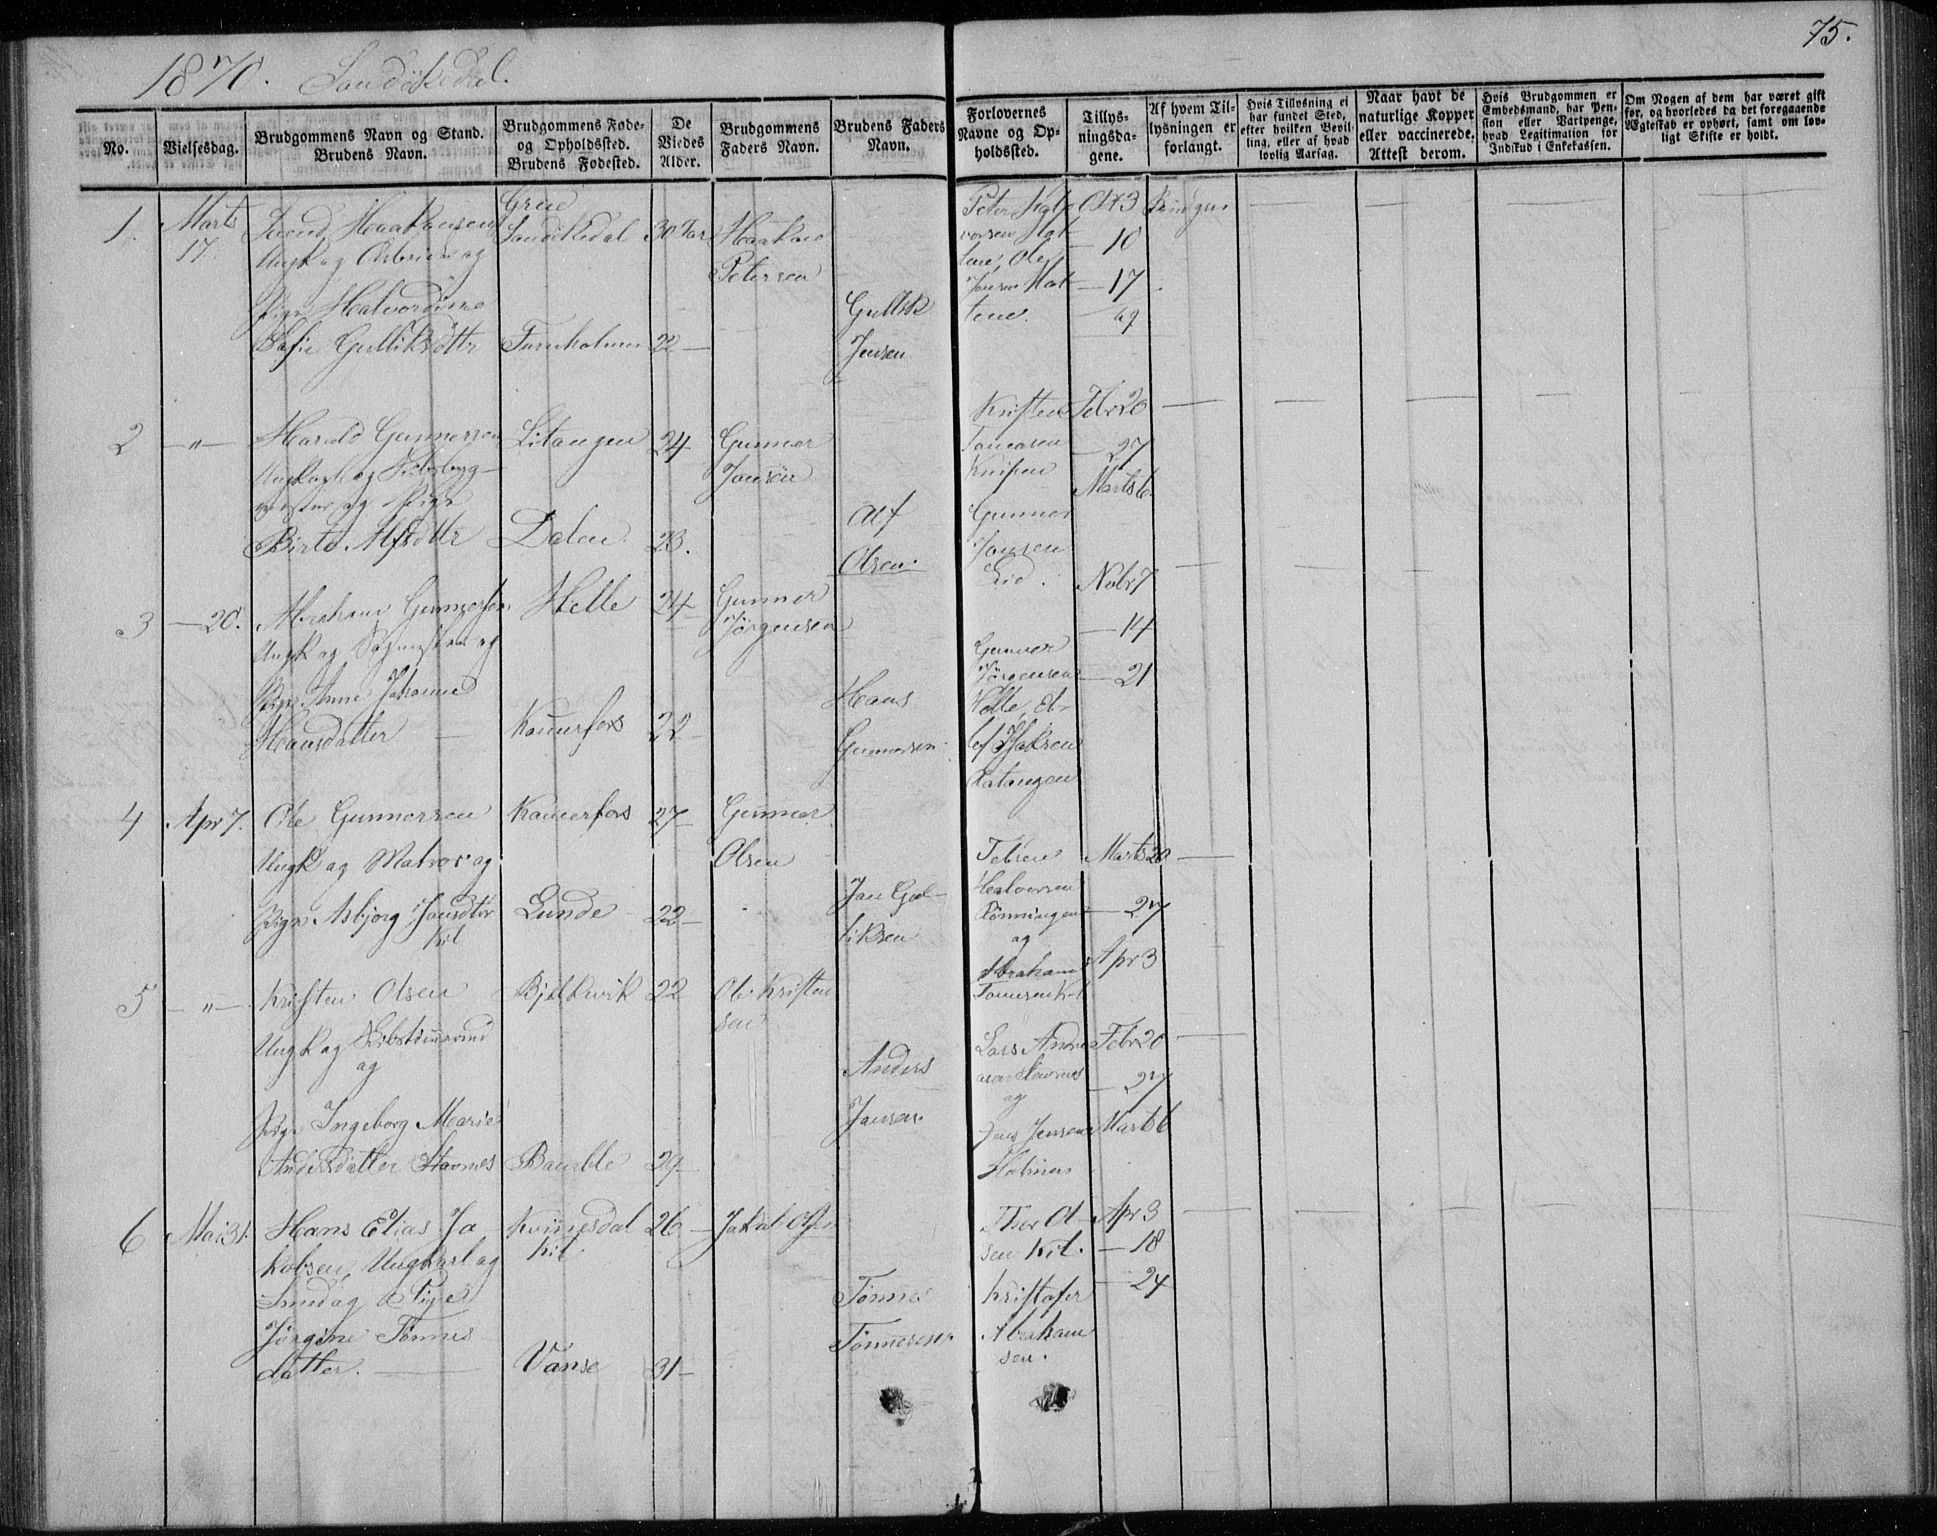 75.
1870. Sandökedal.
No.
Vielsesdag.
Brudgommens Navn og Stand.
Brudens Navn.
Brudgommens Føde-
og Opholdssted.
Brudens Fødested.
De
Viedes
Alder.
Brudgommens
Faders Navn.
Brudens Faders
Navn.
Forlovernes
Navne og Op-
holdssted.
Tillys-
ningsda-
gene.
Af hvem Til-
lysningen er
forlangt.
Hvis Tillysning ei
har fundet Sted,
efter hvilken Bevil-
ling, eller af hvad
lovlig Aarsag.
Naar havt de
naturlige Kopper
eller vaccinerede,
Attest derom.
Hvis Brudgommen er
Embedsmand, har Pen-
sion eller Vartpenge,
hvad Legitimation for
Indskud i Enkekassen.
Om Nogen af dem har været gift
før, og hvorledes da det foregaaende
Ægteskab er ophørt, samt om lov-
ligt Skifte er holdt.
1. Marts
17.
Haakonsen
Ungk og og
Pige Halvordine
Sofie Gulliksdttr
Sandökedal
30 Aar
22
Haakon
Petersen
Gullik
Jensen
Peter Hal-
vorsen
Ole
Jonsen
3
10
17
69
2 — " —
Harald Gunnersen
Ungkarl og
og Pige
Birte Alfsdttr
Litangen
Dalen
24
23.
Gunner
Jonsen
Alf
Olsen.
Kristen
Gunner
Jonsen
Lid.
Febr 20
— 27
Marts 6.
3 — 20.
Abraham Gunnersen
Ungk og og
Pige Anne Johanne
Hansdatter
Helle
Kammerfos
24
22
Gunner
Jörgensen
Hans
Gunnersen
Gunner
Jörgensen
Helle, O-
Nobr 7
— 14
— 21
4 Apr 7.
Ole Gunnersen
Ungk og Matros og
Pige Asbjørg Jansdtr
Kil
Kammerfos
Lunde
27
22
Gunner
Olsen
Jan Gul-
liksen
Halvorsen
Rönningen
og
Abraham
Marts 20
— 27
Apr 3
5 — " —
Kristen Olsen
Ungk og
og
Pige Ingeborg Marie
Andersdatter Stavnes
Bjelkvik
Bamble
22
29
Ole Kristen
sen
Anders
Jansen.
Lars Andre
Stavnes
og
Jens Jensen
Holmen
Febr 20
— 27
Marts 6
6 Mai 31.
Hans Elias Ja
kobsen, Ungkarl og
Smed og Pige
Jörgine Tönnes
datter.
Kvinesdal
Kil
Vanse
26
31
Jakob Olsen
Tönnes
Tönnesen.
Thor Ol-
sen Kil.
Kristofer
Abraham
sen.
Apr 3
— 18
— 24